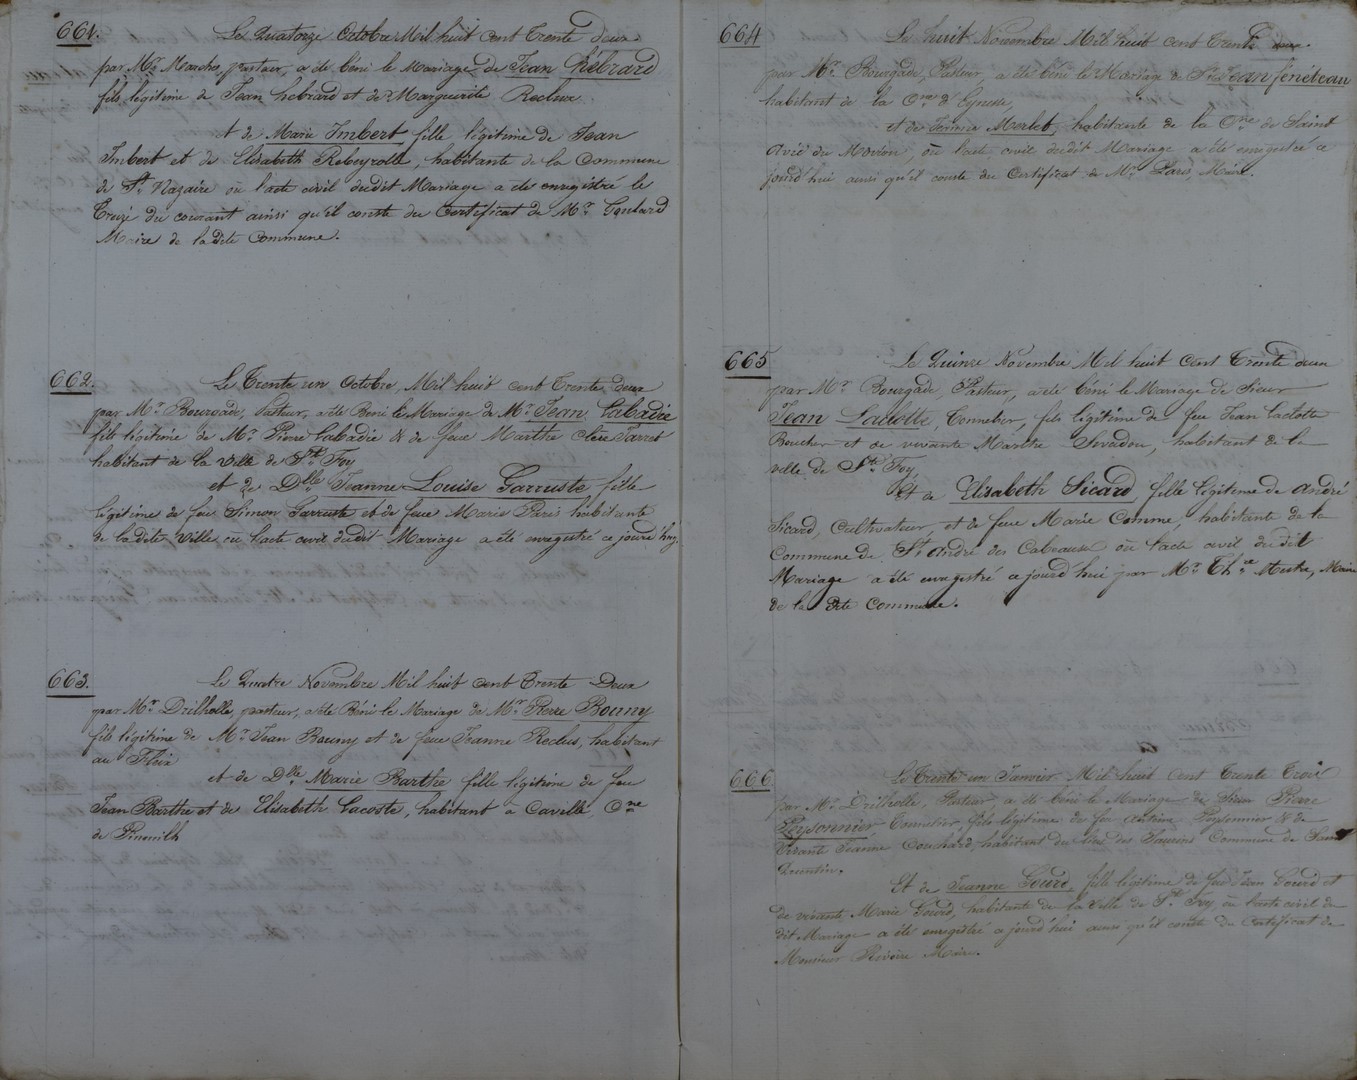 661.
Le Quatorze Octobre Mil huit cent Trente deux
par Mr. Marche, pasteur, a été béni le Mariage de Jean Hébrard
fils légitime de Jean hebrard et de Marguerite Reclus.
et de Marie Imbert fille légitime de Jean
Imbert et de Elisabeth Rebeyrolle, habitante de la Commune
de St. Nazaire où l'acte civil dudit Mariage a été enregistré le
treize du courant ainsi qu'il conste du Certificat de Mr. Goulard
Maire de la dite Commune.
662.
Le Trente un Octobre, Mil huit cent Trente Deux
par Mr. Bourgade, Pasteur, a été Béni le Mariage de Mr. Jean Labadie
fils légitime de Mr. Pierre Labadie & de feue Marthe Jarret
habitant de la Ville de Ste Foy
et de Dlle Jeanne Louise Garruste fille
légitime de feu Simon Garruste et de feue Marie Paris habitante
de la dite Ville où l'acte civil dudit Mariage a été enregistré ce jourd'huy.
663.
Le Quatre Novembre Mil huit cent Trente Deux
par Mr. Drilholle, pasteur, a été Béni le Mariage de Mr. Pierre Bouny
fils légitime de Mr. Jean Bouny et de feue Jeanne Reclus, habitant
au Fleix
et de Dlle Marie Barthe fille légitime de feu
Jean Barthe et de Elisabeth Lacoste, habitant à Caville Cne
de Pineuilh
664
Le huit Novembre Mil huit cent Trente
par Mr. Bourgade Pasteur, a été béni le Mariage de Sr. Jean fénéteau
habitant de la Cne d'Eynesse,
et de Merlet, habitante de la Cne de Saint
Avit du Moiron, où l'acte civil dudit Mariage a été enregistré ce
jourd'hui ainsi qu'il conste du Certificat de Mr. Paris Maire.
665
Le Quinze Novembre Mil huit cent Trente deux
par Mr. Bourgade, Pasteur, a été béni le Mariage de Sieur
Jean Laclotte, Tonnelier, fils légitime de feu Jean Laclotte
Boucher et de vivante Marthe habitant de la
ville de Ste Foy
Et de Elisabeth Sicard, fille légitime de André
Sicard, Cultivateur, et de feue Marie Comme, habitante de la
Commune de St. André des Cabauses où l'acte civil du dit
Mariage a été enregistré ce jourd'hui par Mr. Mestre, Maire
de la dite Commune.
666
Le Trente un Janvier Mil huit Cent Trente Trois
par Mr. Drilholle, Pasteur, a été béni le Mariage de Sieur Pierre
Peysonnier Tonnelier, fils légitime de feu Antoine Peysonnier & de
vivante Jeanne Couchard, habitant du lieu des Saurins Commune de Saint
Quentin.
Et de Jeanne Gourd, fille légitime de feu Jean Gourd et
de vivante Marie Gourd, habitante de la Ville de Ste Foy où l'acte civil du
dit Mariage a été enregistré ce jourd'hui ainsi qu'il conste du Certificat de
Monsieur Rivoire Maire.